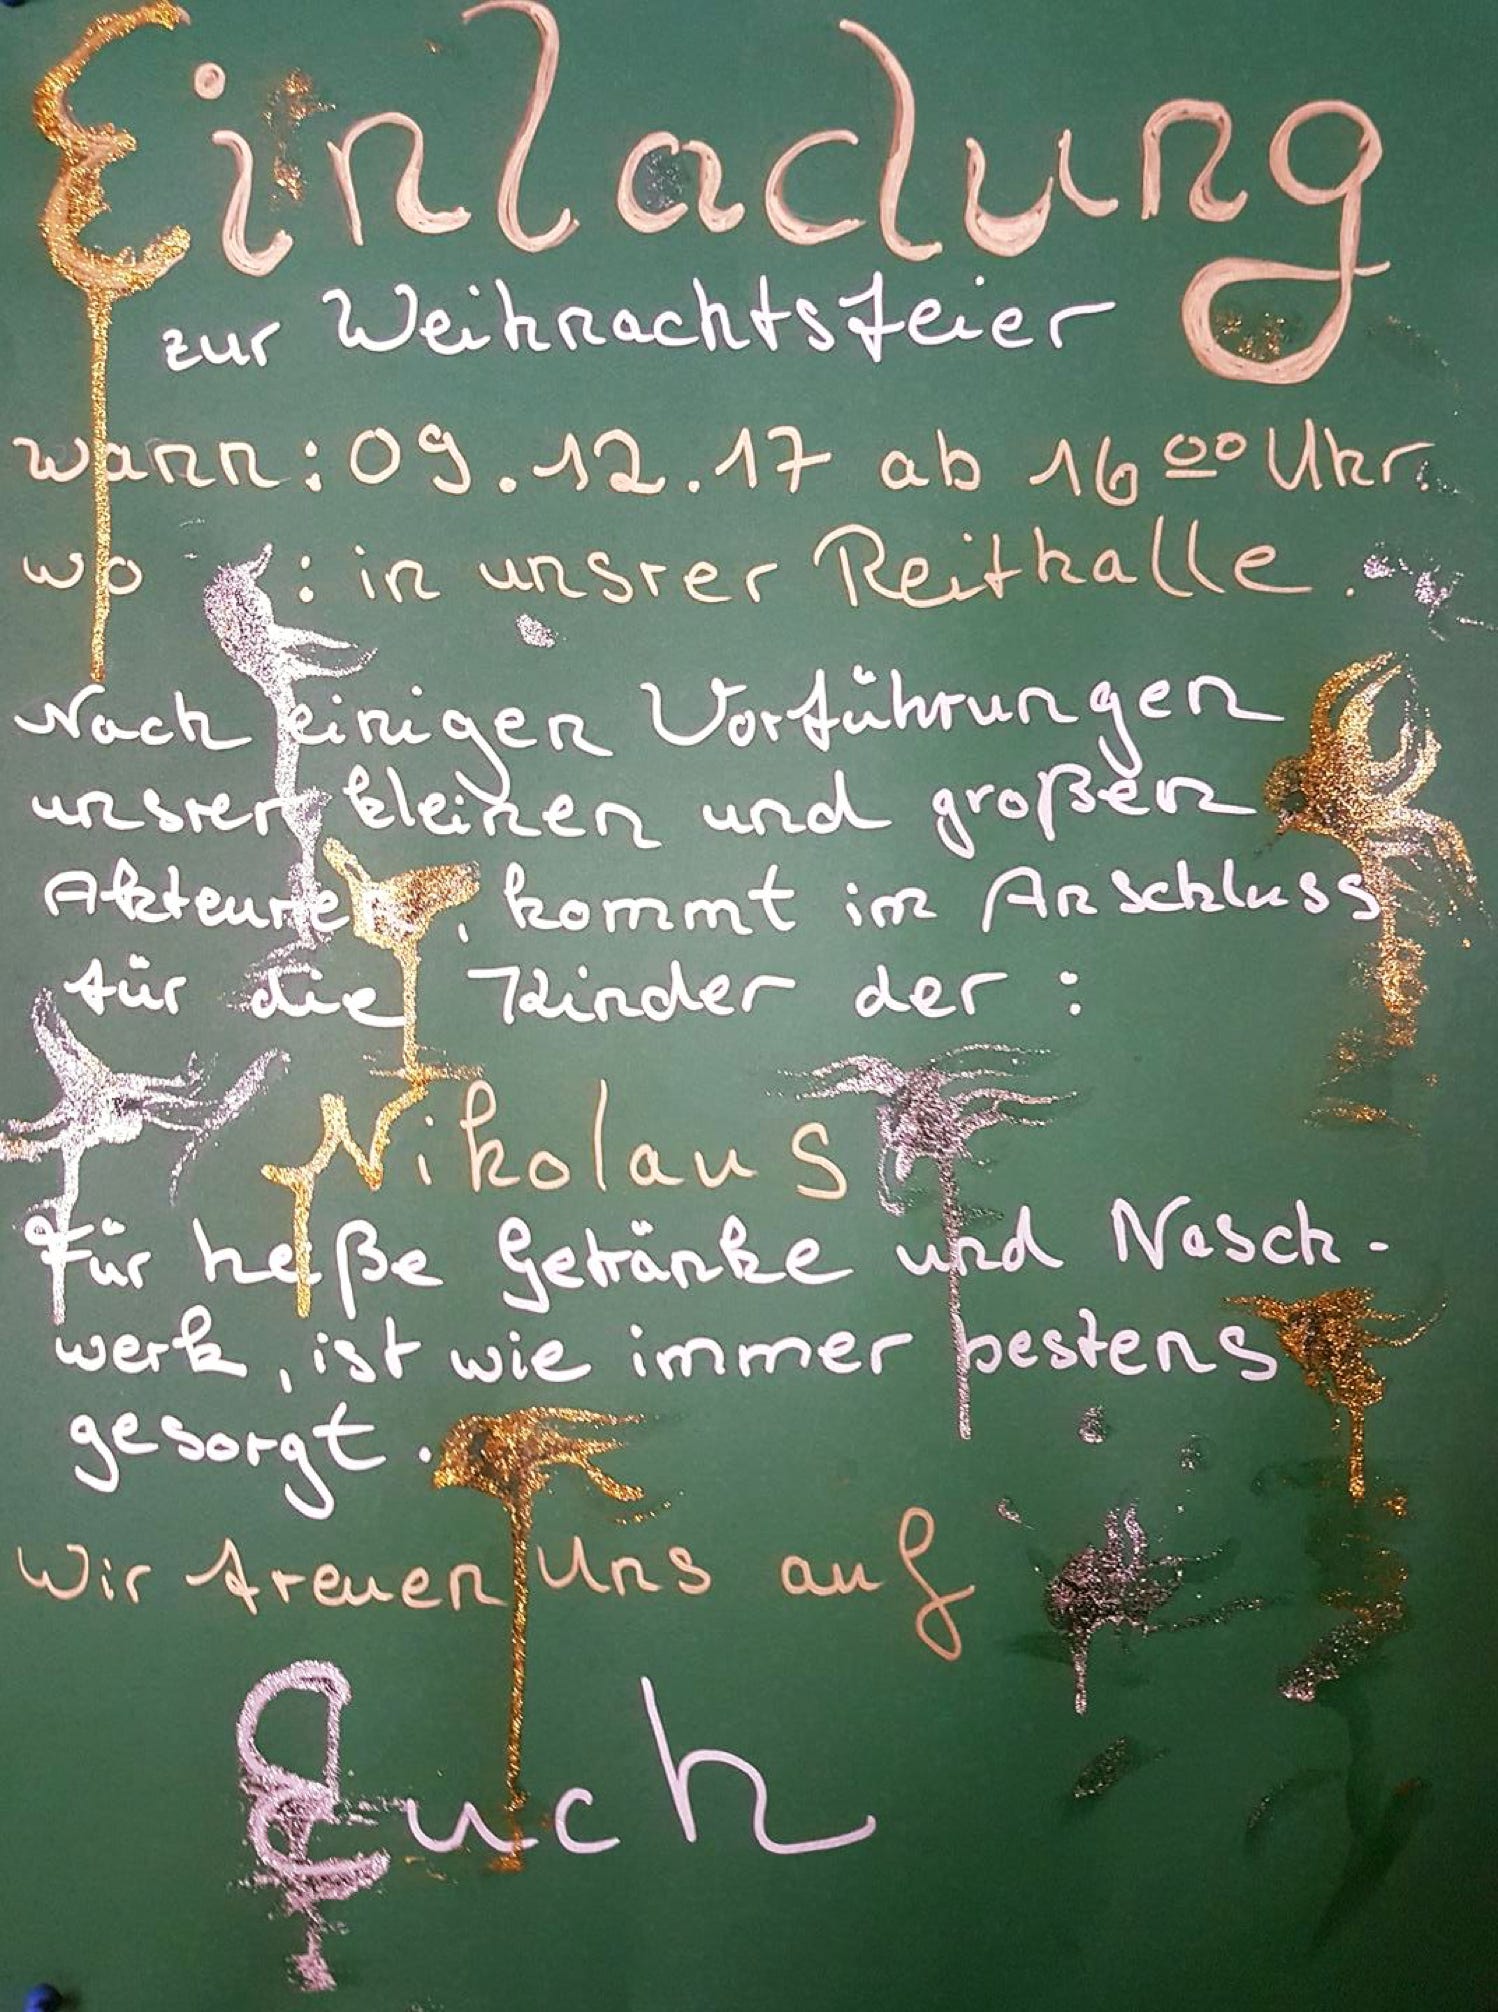 Einladung
zur Weihnachtsfeier
wann: 09.12.17 ab 16 00 Uhr.
wo : in unsrer Reithalle.
Nach einigen Vorführungen
unsrer kleinen und großen
Akteuren, kommt im Anschluss
für die Kinder der :
Nikolaus
Für heiße Getränke und Nasch-
werk, ist wie immer bestens
gesorgt.
Wir freuen Uns auf
Euch